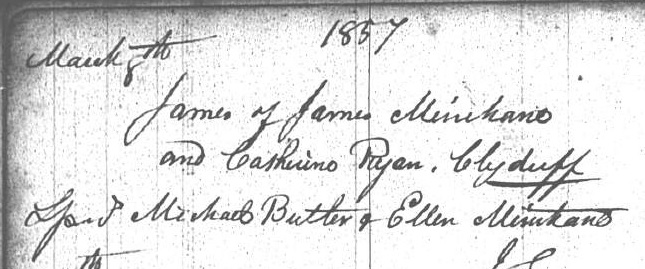 1857
March 8th
James of James Minihane
and Catherine Ryan. Clyduff
Spr.s Michael Butler & Ellen Minihane
th